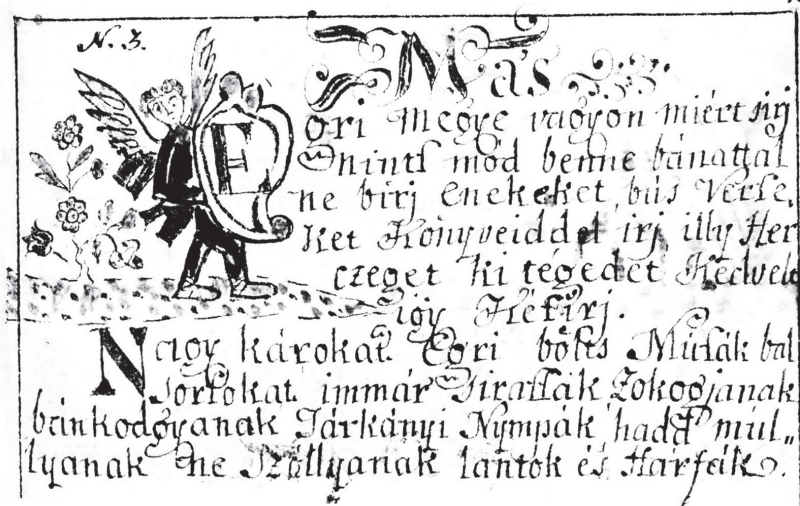 N. 3.
Más
E
gri Megye vagyon miért sirj
nints mód benne bánattal
ne birj enekeket, bús Verse,
ket Könyveiddel irj illy Her
czeget ki tégedet Kedvelt
így Kesirj.
Nagy károkat Egri bölts Musák bal
Sorsokat immár Sirassák, Zokogjanak
bánkodgyanak Tárkányi Nympák, hadd mul„
lyanak ne Szóllyanak lantok és Hárfák.